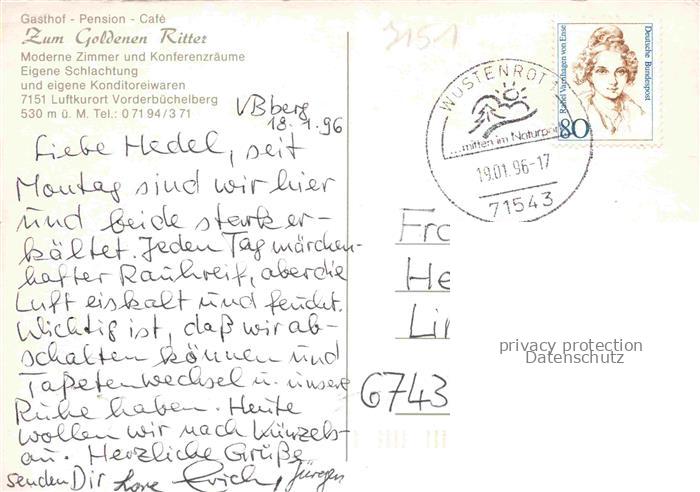 Gasthof - Pension - Café
Zum Goldenen Ritter
Moderne Zimmer und Konferenzräume
Eigene Schlachtung
und eigene Konditoreiwaren
7151 Luftkurort Vorderbüchelberg
530 m ü. M. Tel.: 0 71 94 / 3 71
VBberg
18.1.96
Liebe Hedel, seit
Montag sind wir hier
und beide stark er-
kältet. Jeden Tag märchen-
hafter Rauhreif, aber die
Luft eiskalt und feucht.
Wichtig ist, daß wir ab-
schalten können und
Tapetenwechsel u. unsere
Ruhe haben. Heute
wollen wir nach Künzels-
au. Herzliche Grüße
senden Dir Lore Erich, Jürgen
3151
WÜSTENROT 1
...mitten im Naturpar
19.01.96-17
71543
Rahel Varnhagen von Ense
Deutsche Bundespost
80
Fra
He
Lin
6743
privacy protection
Datenschutz